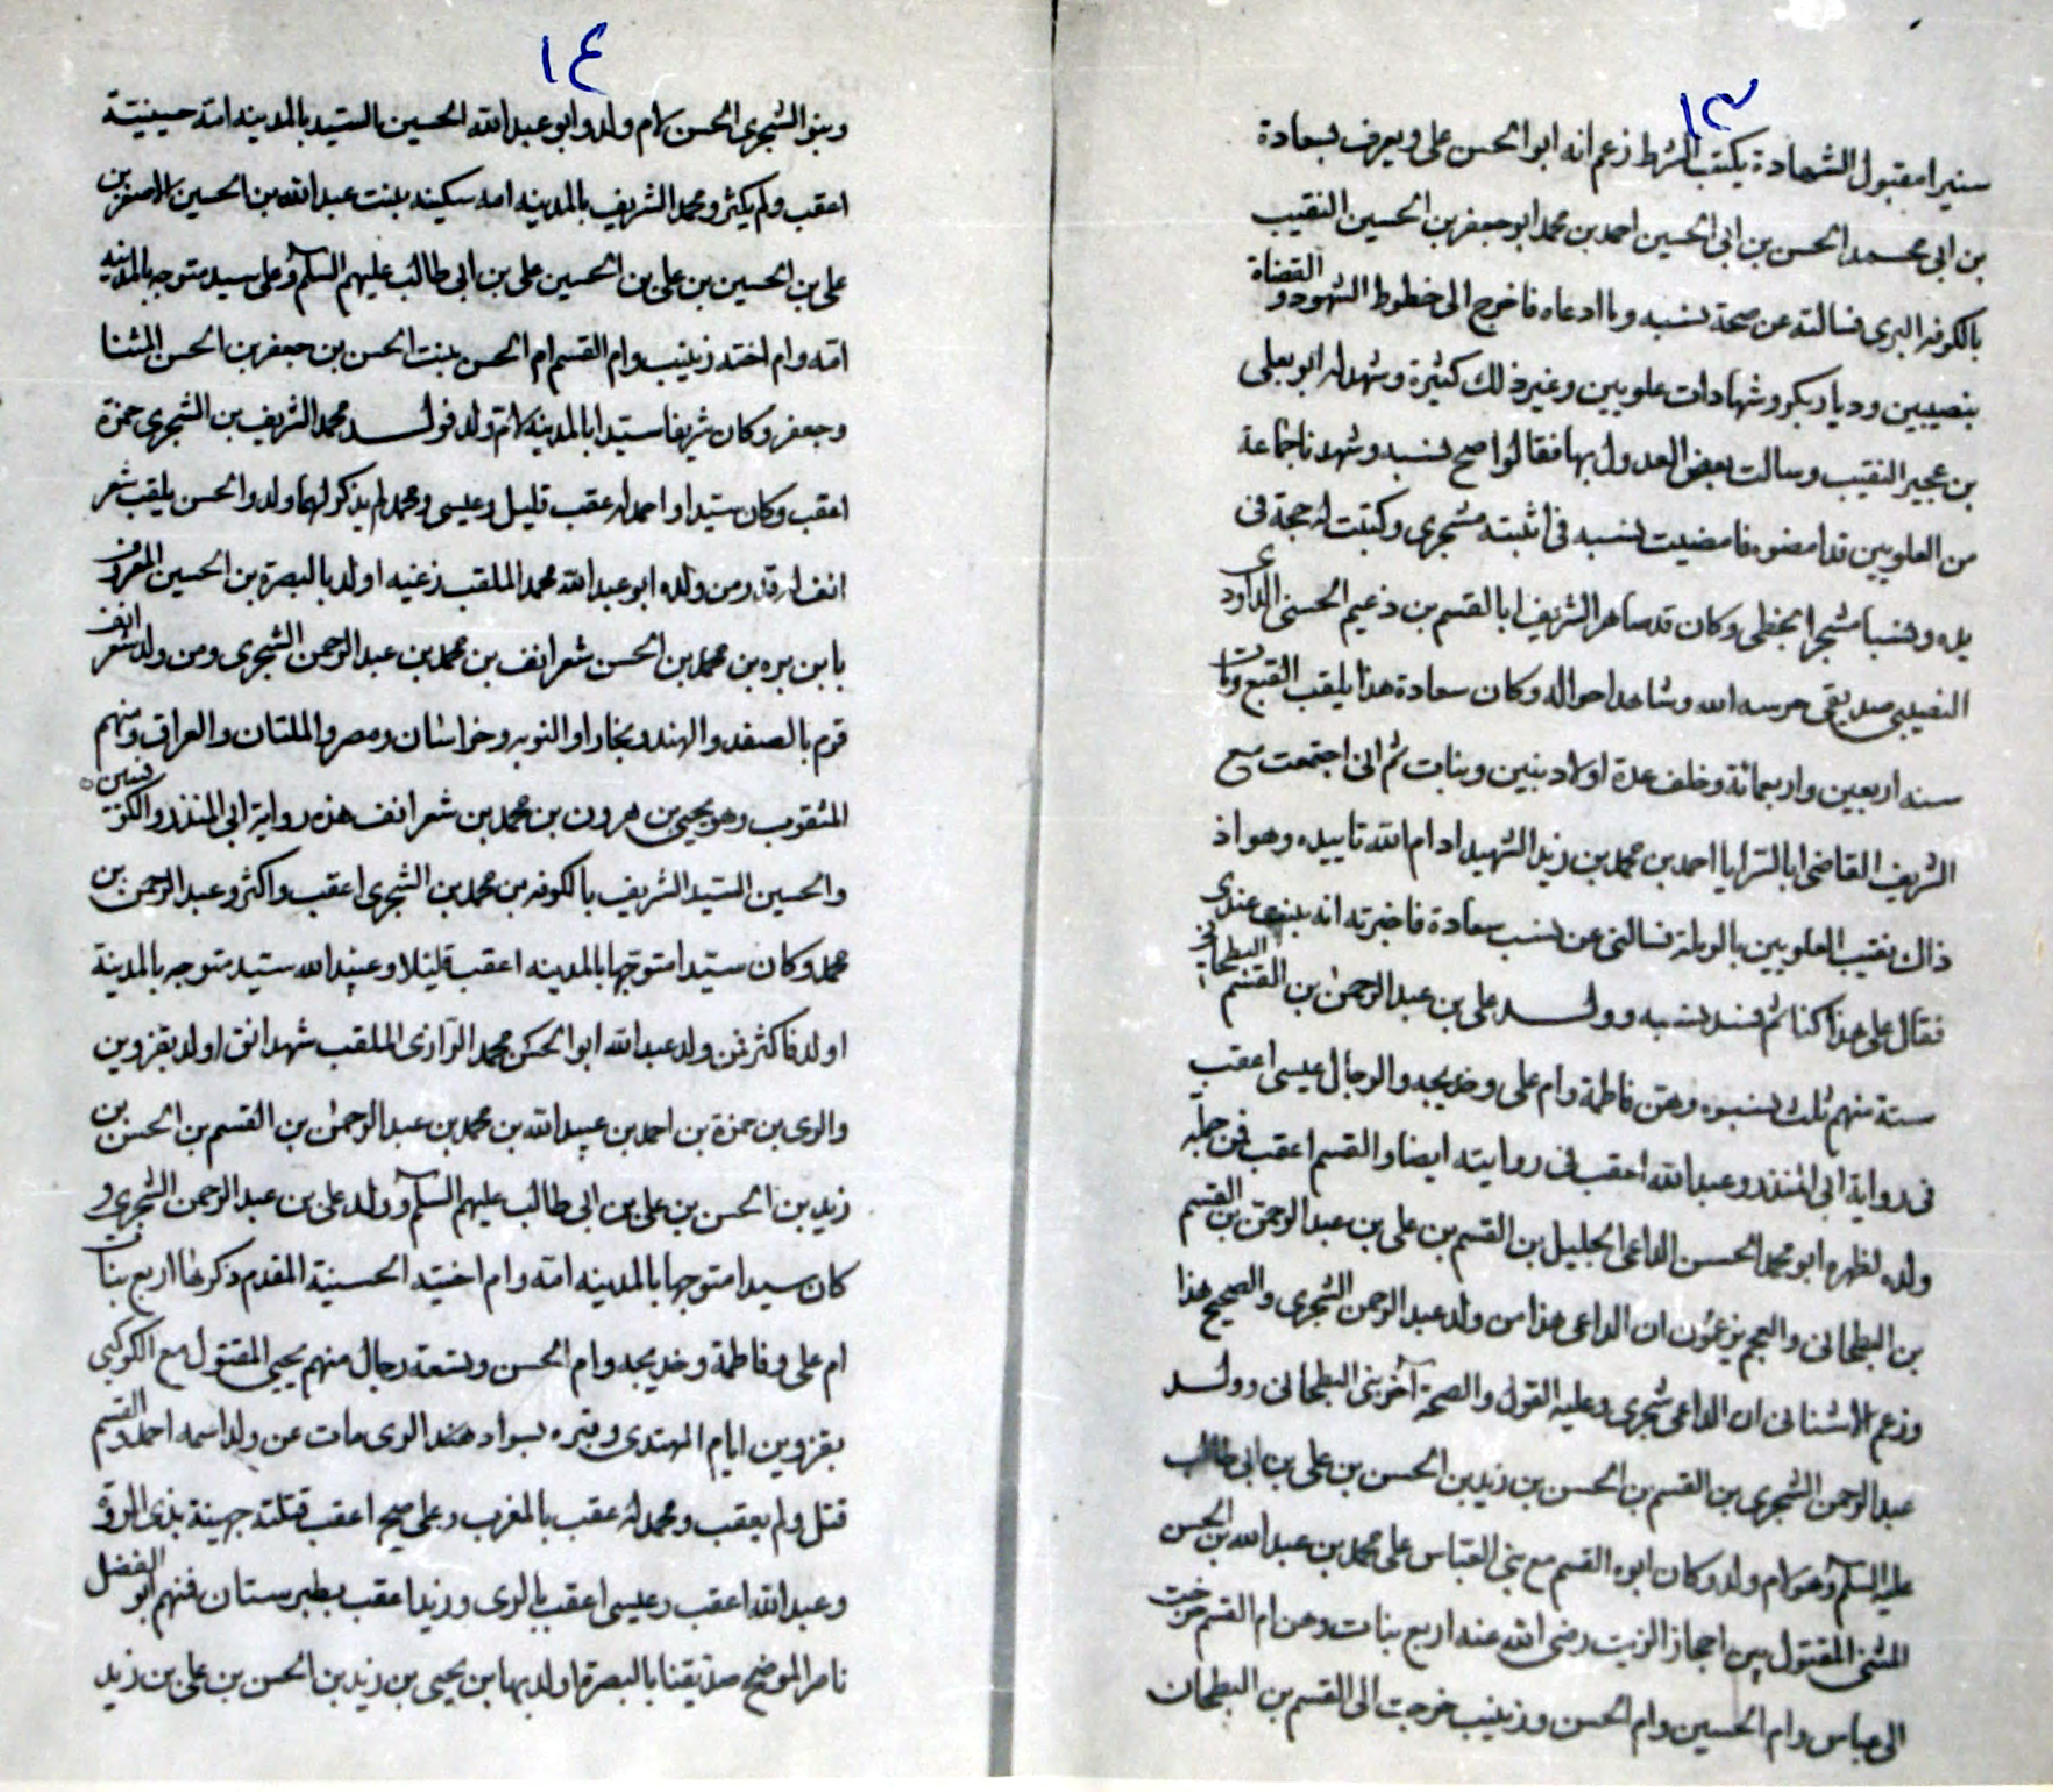 ١٣
ستيرا مقبول الشهادة يكتب الشرط زعم انه ابو الحسن على ويعرف بسعادة
بن ابى محمد الحسن بن ابى الحسين احمد بن محمد ابو جعفر بن الحسين النقيب
بالكوفه البرى فسالته عن صحة نسبه وما ادعاه فاخرج الى خطوط الشهود و القضاة
بنصيبين وديار بكر وشهادات علويين وغير ذلك كثيرة وشهد له ابو يعلى
بن عجير النقيب وسالت بعض العدول بها فقالوا صح نسبه وشهدنا جماعة
من العلويين قد امضوه فامضيت نسبه فى اثبته مشجرى وكتبت له حجة فى
يده ونسبا مشجرا بخطى وكان قد صاهر الشريف ابا القسم بن زعيم الحسنى الداودى
النصيبى صديقى حرسه الله وشاهد احواله وكان سعادة هذا يلقب القبع ومات
سنه اربعين واربعمائة وخلف عدة اولاد بنين وبنات ثم انى اجتمعت مع
الشريف القاضى ابا السرايا احمد بن محمد بن زيد الشهيد ادام الله تاييده وهو اذ
ذاك نقيب العلويين بالرملة فسالنى عن نسب سعادة فاخبرته انه يثبت عندى
فقال على هذا كنا ثم فسد نسبه وولد على بن عبد الرحمن بن القسم البطحانى
ستة منهم ثلث نسوه وهن فاطمة وام على وخديجه والرجال عيسى اعقب
فى رواية ابى المنذر وعبد الله اعقب فى روايته ايضا والقسم اعقب فمن جملة
ولده لظهره ابو محمد الحسن الداعى الجليل بن القسم بن على بن عبد الرحمن بن القسم
بن البطحانى والعجم يزعمون ان الداعى هذا من ولد عبد الرحمن الشجرى والصحيح هذا
وزعم الاشنانى ان الداعى شجرى وعليه القول والصحة آخر بنى البطحانى وولد
عبد الرحمن الشجرى بن القسم بن الحسن بن زيد بن الحسن بن على بن ابى طالب
عليه السلم وهو لام ولد وكان ابوه القسم مع بنى العباس على محمد بن عبد الله بن الحسن
المثنى المقتول بين احجاز الزيت رضى الله عنه اربع بنات وهن ام القسم خرجت
الى عباس وام الحسين وام الحسن وزينب خرجت الى القسم بن البطحان
١٤
وبنو الشجرى الحسن لام ولد وابو عبد الله الحسين السيد بالمدينه امه حسينية
اعقب ولم يكثر ومحمد الشريف بالمدينه امه سكينه بنت عبد الله بن الحسين الاصغر بن
على بن الحسين بن على بن الحسين على بن ابى طالب عليهم السلم وعلى سيد متوجه بالمدينه
امه وام اخته زينب وام القسم ام الحسن بنت الحسن بن جعفر بن الحسن المثنا
وجعفر وكان شريفا سيدا بالمدينه لام ولد فولد محمد الشريف بن الشجرى حمزة
اعقب وكان سيدا واحمد له عقب قليل وعيسى ومحمد لم يذكر لهما ولد والحسن يلقب شعر
انف له قدر ومن ولده ابو عبد الله محمد الملقب زغنيه اولد بالبصرة بن الحسين المعروف
بابن بره بن محمد بن الحسن شعر انف بن محمد بن عبد الرحمن الشجرى ومن ولد شعر انف
قوم بالصغد والهند وبخارا والنوبه وخراسان ومصر والملتان والعراق ومنهم
المثقوب وهو يحيى بن هرون بن محمد بن شعر انف هذه رواية ابى المنذر والكوفيين
والحسين السيد الشريف بالكوفه بن محمد بن الشجرى اعقب واكثر وعبد الرحمن بن
محمد وكان سيدا متوجها بالمدينه اعقب قليلا وعبيد الله سيد متوجه بالمدينة
اولد فاكثر فمن ولد عبد الله ابو الحسن محمد الرازى الملقب شهدانق اولد بقزوين
والرى بن حمزة بن احمد بن عبيد الله بن محمد بن عبد الرحمن بن القسم بن الحسن بن
زيد بن الحسن بن على بن ابى طالب عليهم السلم وولد على بن عبد الرحمن الشجرى و
كان سيدا متوجها بالمدينه امه وام اختيه الحسينية المقدم ذكرها اربع بنات
ام على وفاطمة وخديجه وام الحسن وتسعة رجال منهم يحيى المقتول مع الكوكبى
بقزوين ايام المهتدى وقبره بسواد هند الرى مات عن ولد اسمه احمد والقسم
قتل ولم يعقب ومحمد له عقب بالمغرب وعلى صح اعقب قتلته جهينة بذى المروة
وعبد الله اعقب وعيسى اعقب بالرى وزيد اعقب بطبرستان فمنهم ابو الفضل
ناصر الموضح صديقنا بالبصرة اولد بها بن يحيى بن زيد بن الحسن بن على بن زيد